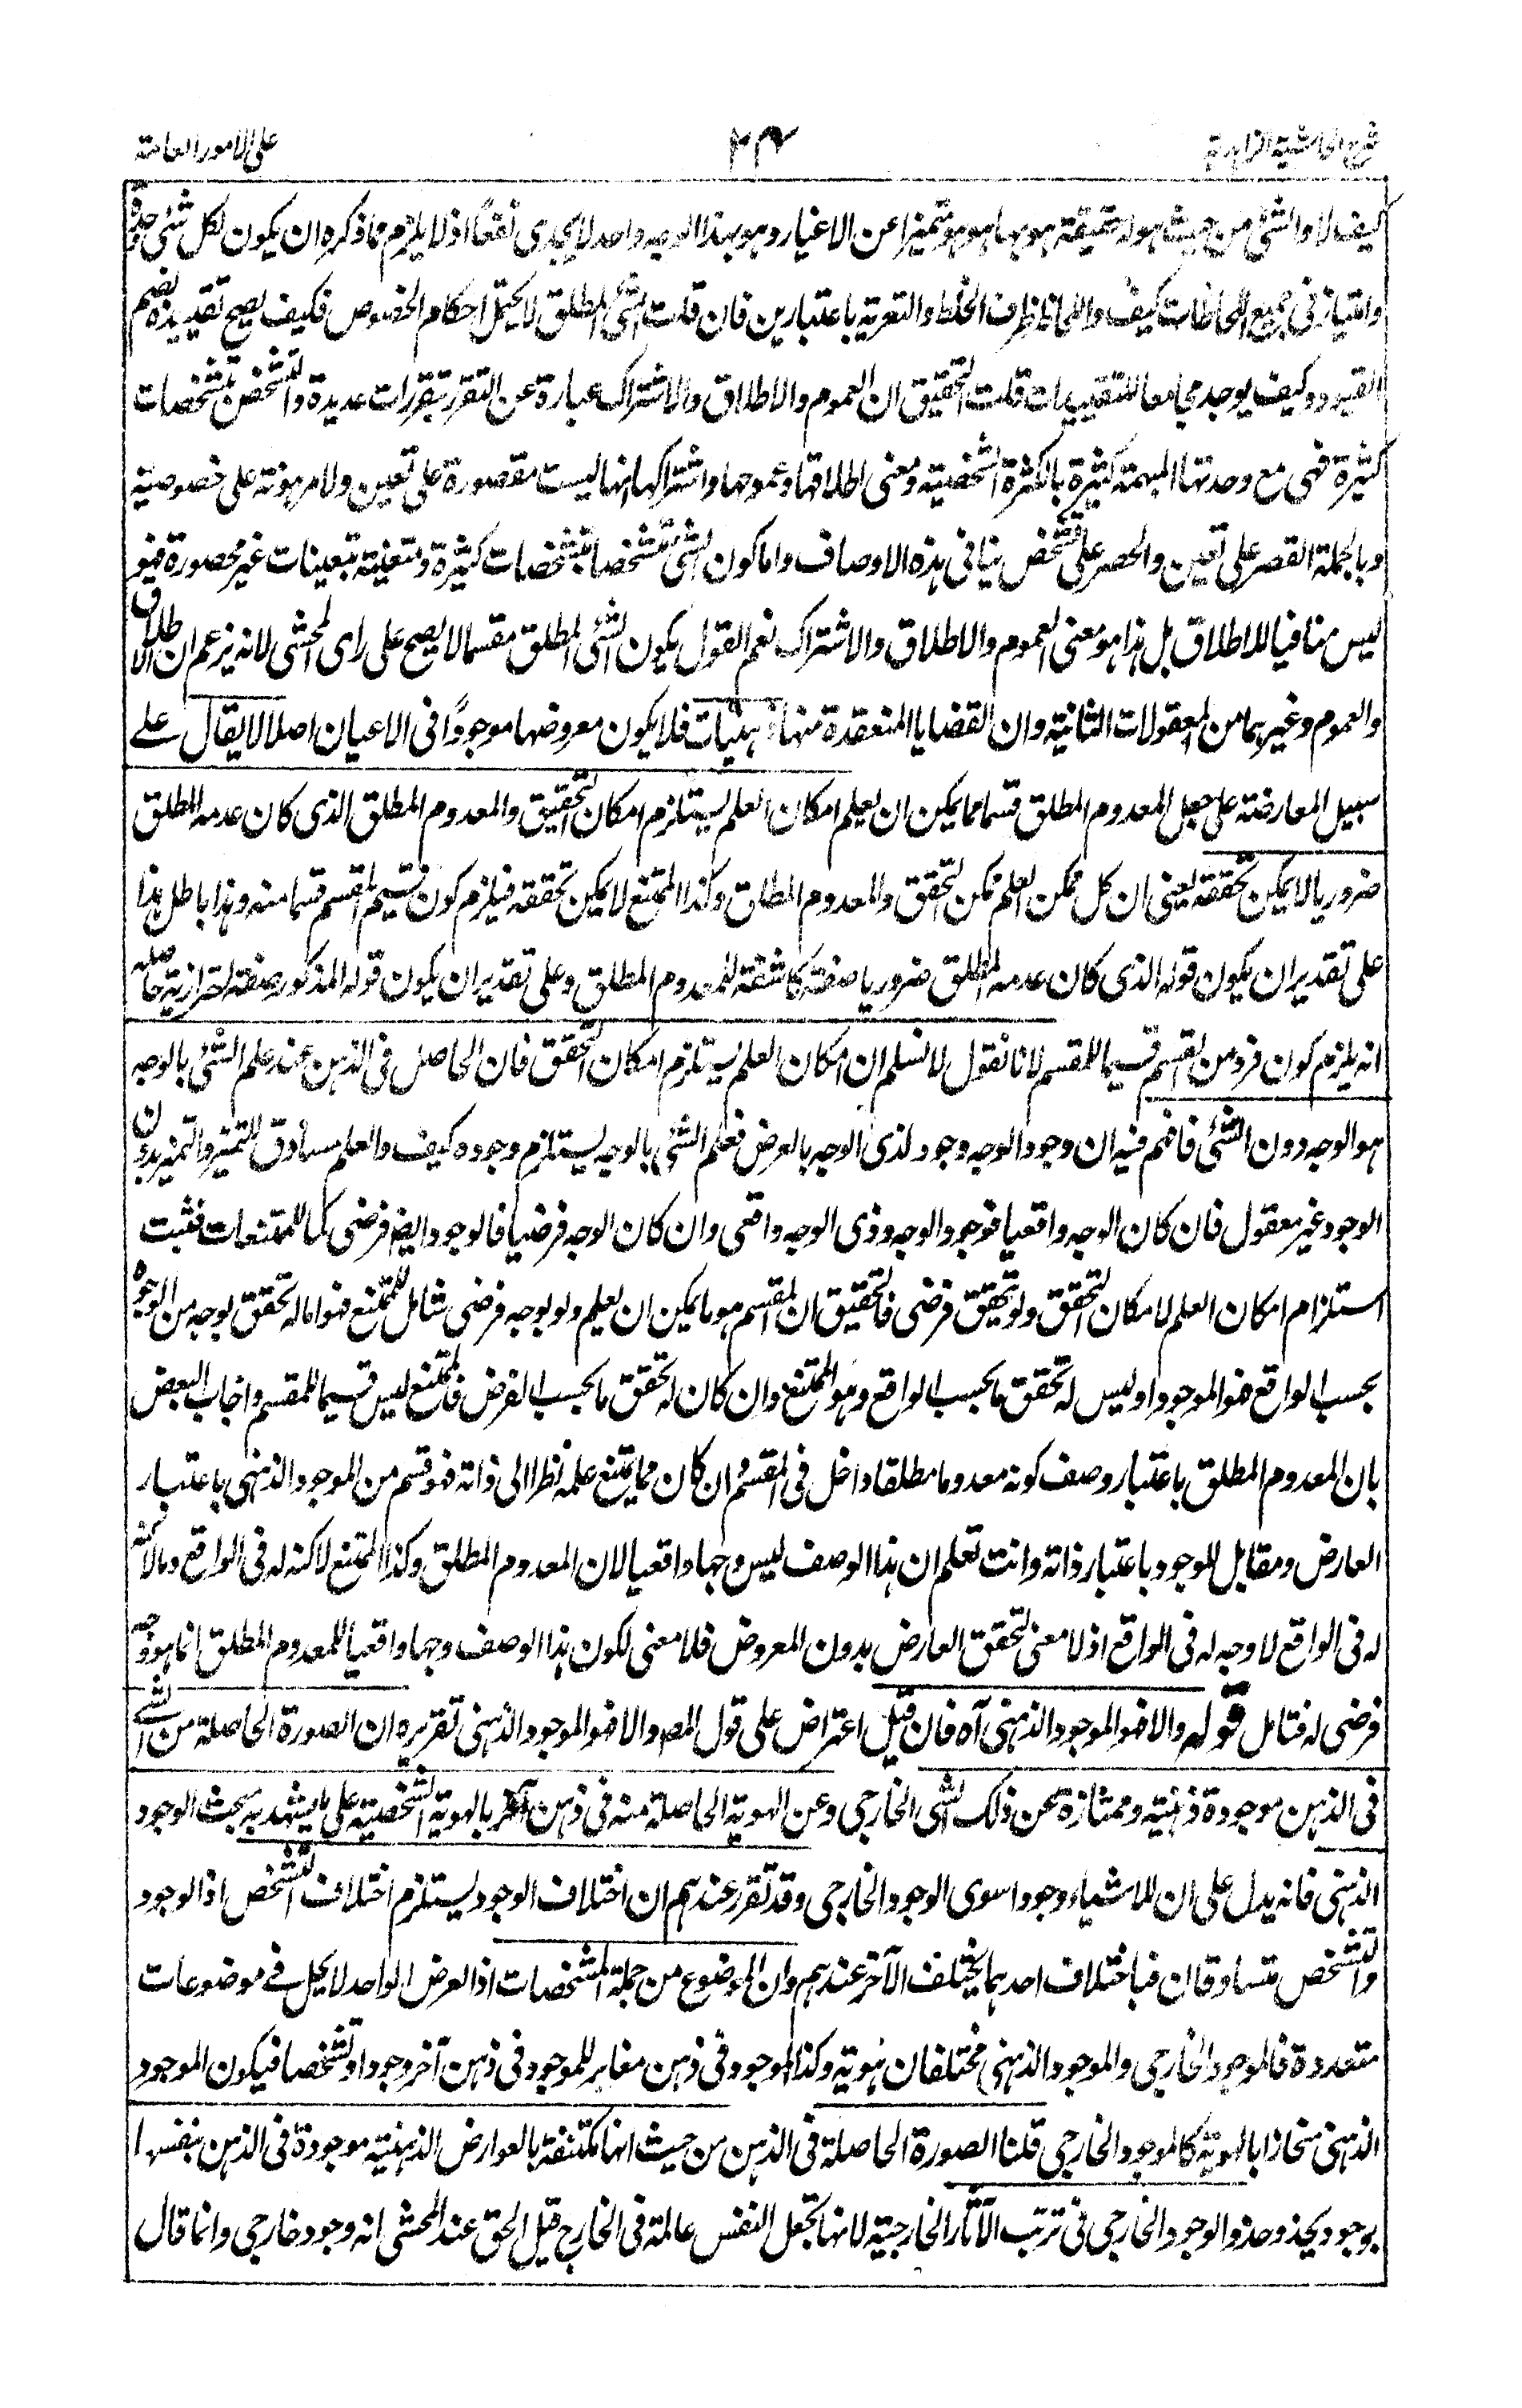 شرح الحاشية الزاهدية
٢٣
على الامور العامة
كيف لا والشئ من حيث هو له حقيقة هو بها هو هو متميزا عن الاغيار وهو بهذا الوجه واحد لا يجدى نفعًا اذ لا يلزم مما ذكره ان يكون لكل شئ وحدة
وامتياز فى جميع اللحاظات كيف واللحاظ ظرف الخلط والتعرية باعتبارين فان قلت الشئ المطلق لا يحتمل احكام الخصوص فكيف يصح تقييده بضم
القيود وكيف يوجد مجامعا للتقييدات قلت التحقيق ان العموم والاطلاق والاشتراك عبارة عن التقرر بتقررات عديدة والتشخص بتشخصات
كثيرة فهى مع وحدتها المبهمة كثيرة بالكثرة الشخصية ومعنى اطلاقها وعمومها واشتراكها انها ليست مقصورة على تعين ولا مرهونة على خصوصية
وبالجملة القصر على تعين والحصر على تشخص ينافى هذه الاوصاف واما كون الشئ متشخصا بتشخصات كثيرة ومتعينة بتعينات غير محصورة فهو
ليس منافيا للاطلاق بل هذا هو معنى العموم والاطلاق والاشتراك نعم القول بكون الشئ المطلق مقسما لا يصح على راى المحشى لانه يزعم ان الاطلاق
والعموم وغيرهما من المعقولات الثانية وان القضايا المنعقدة منها ذهنيات فلا يكون معروضها موجودًا فى الاعيان اصلا لا يقال على
سبيل المعارضة على جعل المعدوم المطلق قسما مما يمكن ان يعلم امكان العلم يستلزم امكان التحقيق والمعدوم المطلق الذى كان عدمه المطلق
ضروريا لا يمكن تحققه يعنى ان كل ممكن العلم ممكن التحقق والمعدوم المطلق وكذا الممتنع لا يمكن تحققه فيلزم كون قسيم المقسم قسما منه وهذا باطل هذا
على تقدير ان يكون قوله الذى كان عدمه المطلق ضروريا صفة كاشفة للمعدوم المطلق وعلى تقدير ان يكون قوله المذكور صفة احترازية حاصله
انه يلزم كون فرد من القسم قسيما للمقسم لانا نقول لا نسلم ان امكان العلم يستلزم امكان التحقق فان الحاصل فى الذهن عند علم الشئ بالوجه
هو الوجه دون الشئ فافهم فيه ان وجود الوجه وجود لذى الوجه بالعرض فعلم الشئ بالوجه يستلزم وجوده كيف والعلم مساوق للتميز والتميز بدون
الوجود غير معقول فان كان الوجه واقعيا فوجود الوجه وذى الوجه واقعى وان كان الوجه فرضيا فالوجود ايضا فرضى كما للممتنعات فثبت
استلزام امكان العلم لامكان التحقق ولو بتحقق فرضى فالتحقيق ان المقسم هو ما يمكن ان يعلم ولو بوجه فرضى شامل للممتنع فهو اما له تحقق بوجه من الوجوه
بحسب الواقع فهو الموجود او ليس له تحقق ما بحسب الواقع وهو الممتنع وان كان له تحقق ما بحسب الفرض فالممتنع ليس قسيما للمقسم واجاب البعض
بان المعدوم المطلق باعتبار وصف كونه معدوما مطلقا داخل فى المقسم وان كان مما يمتنع علمه نظرا الى ذاته فهو قسم من الموجود الذهنى باعتبار
العارض ومقابل للموجود باعتبار ذاته وانت تعلم ان هذا الوصف ليس وجها واقعيا لان المعدوم المطلق وكذا الممتنع لا كنه له فى الواقع وما لا كنه
له فى الواقع لا وجه له فى الواقع اذ لا معنى لتحقق العارض بدون المعروض فلا معنى لكون هذا الوصف وجها واقعيا للمعدوم المطلق انما هو وجه
فرضى له فتامل قوله والا فهو الموجود الذهنى آه فان قيل اعتراض على قول المص والا فهو الموجود الذهنى تقريره ان الصورة الحاصلة من الشئ
فى الذهن موجودة ذهنية وممتازة عن ذلك الشئ الخارجى وعن الهوية الحاصلة منه فى ذهن آخر بالهوية الشخصية على ما يشهد به بحث الوجود
الذهنى فانه يدل على ان للاشياء وجودا سوى الوجود الخارجى وقد تقرر عندهم ان اختلاف الوجود يستلزم اختلاف التشخص اذ الوجود
والتشخص متساوقان فباختلاف احدهما يختلف الآخر عندهم وان الموضوع من جملة المشخصات اذ العرض الواحد لا يحل فى موضوعات
متعددة فالموجود الخارجى والموجود الذهنى مختلفان هوية وكذا الموجود فى ذهن مغاير للموجود فى ذهن آخر وجودا وتشخصا فيكون الموجود
الذهنى منحازا بالهوية كالموجود الخارجى قلنا الصورة الحاصلة فى الذهن من حيث انها مكتنفة بالعوارض الذهنية موجودة فى الذهن بنفسها
بوجود يحذو حذو الوجود الخارجى فى ترتب الآثار الخارجية لانها تجعل النفس عالمة فى الخارج قيل الحق عند المحشى انه وجود خارجى وانما قال